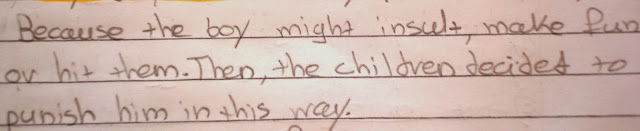 Because the boy might insult, make fun
or hit them. Then, the children decided to
punish him in this way.